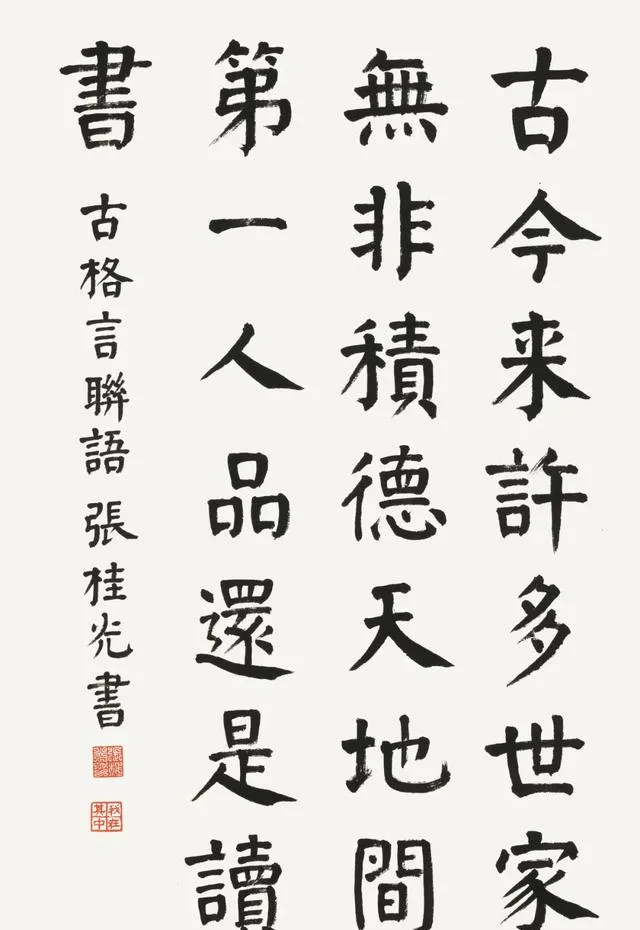 古今来許多世家
無非積德天地間
第一人品還是讀
書
古格言聯語 張桂光書
我在其中